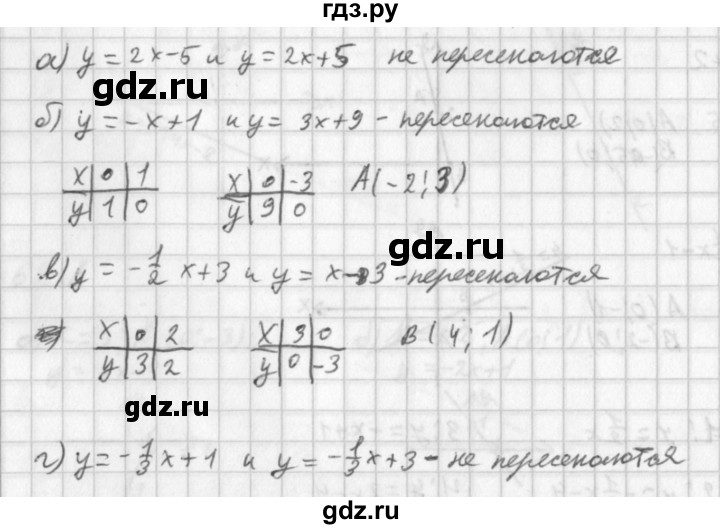 гдз.ру
а) y = 2x-5 и y = 2x+5 не пересекаются
гдз.ру
б) y = -x+1 и y = 3x+9 - пересекаются
x | 0 | 1   x | 0 | -3   A(-2; 3)
y | 1 | 0   y | 9 | 0
гдз.ру
в) y = -1/2 x+3 и y = x-3 - пересекаются
x | 0 | 2   x | 3 | 0   B(4; 1)
y | 3 | 2   y | 0 | -3
гдз.ру
г) y = -1/3 x+1 и y = -1/3 x+3 - не пересекаются